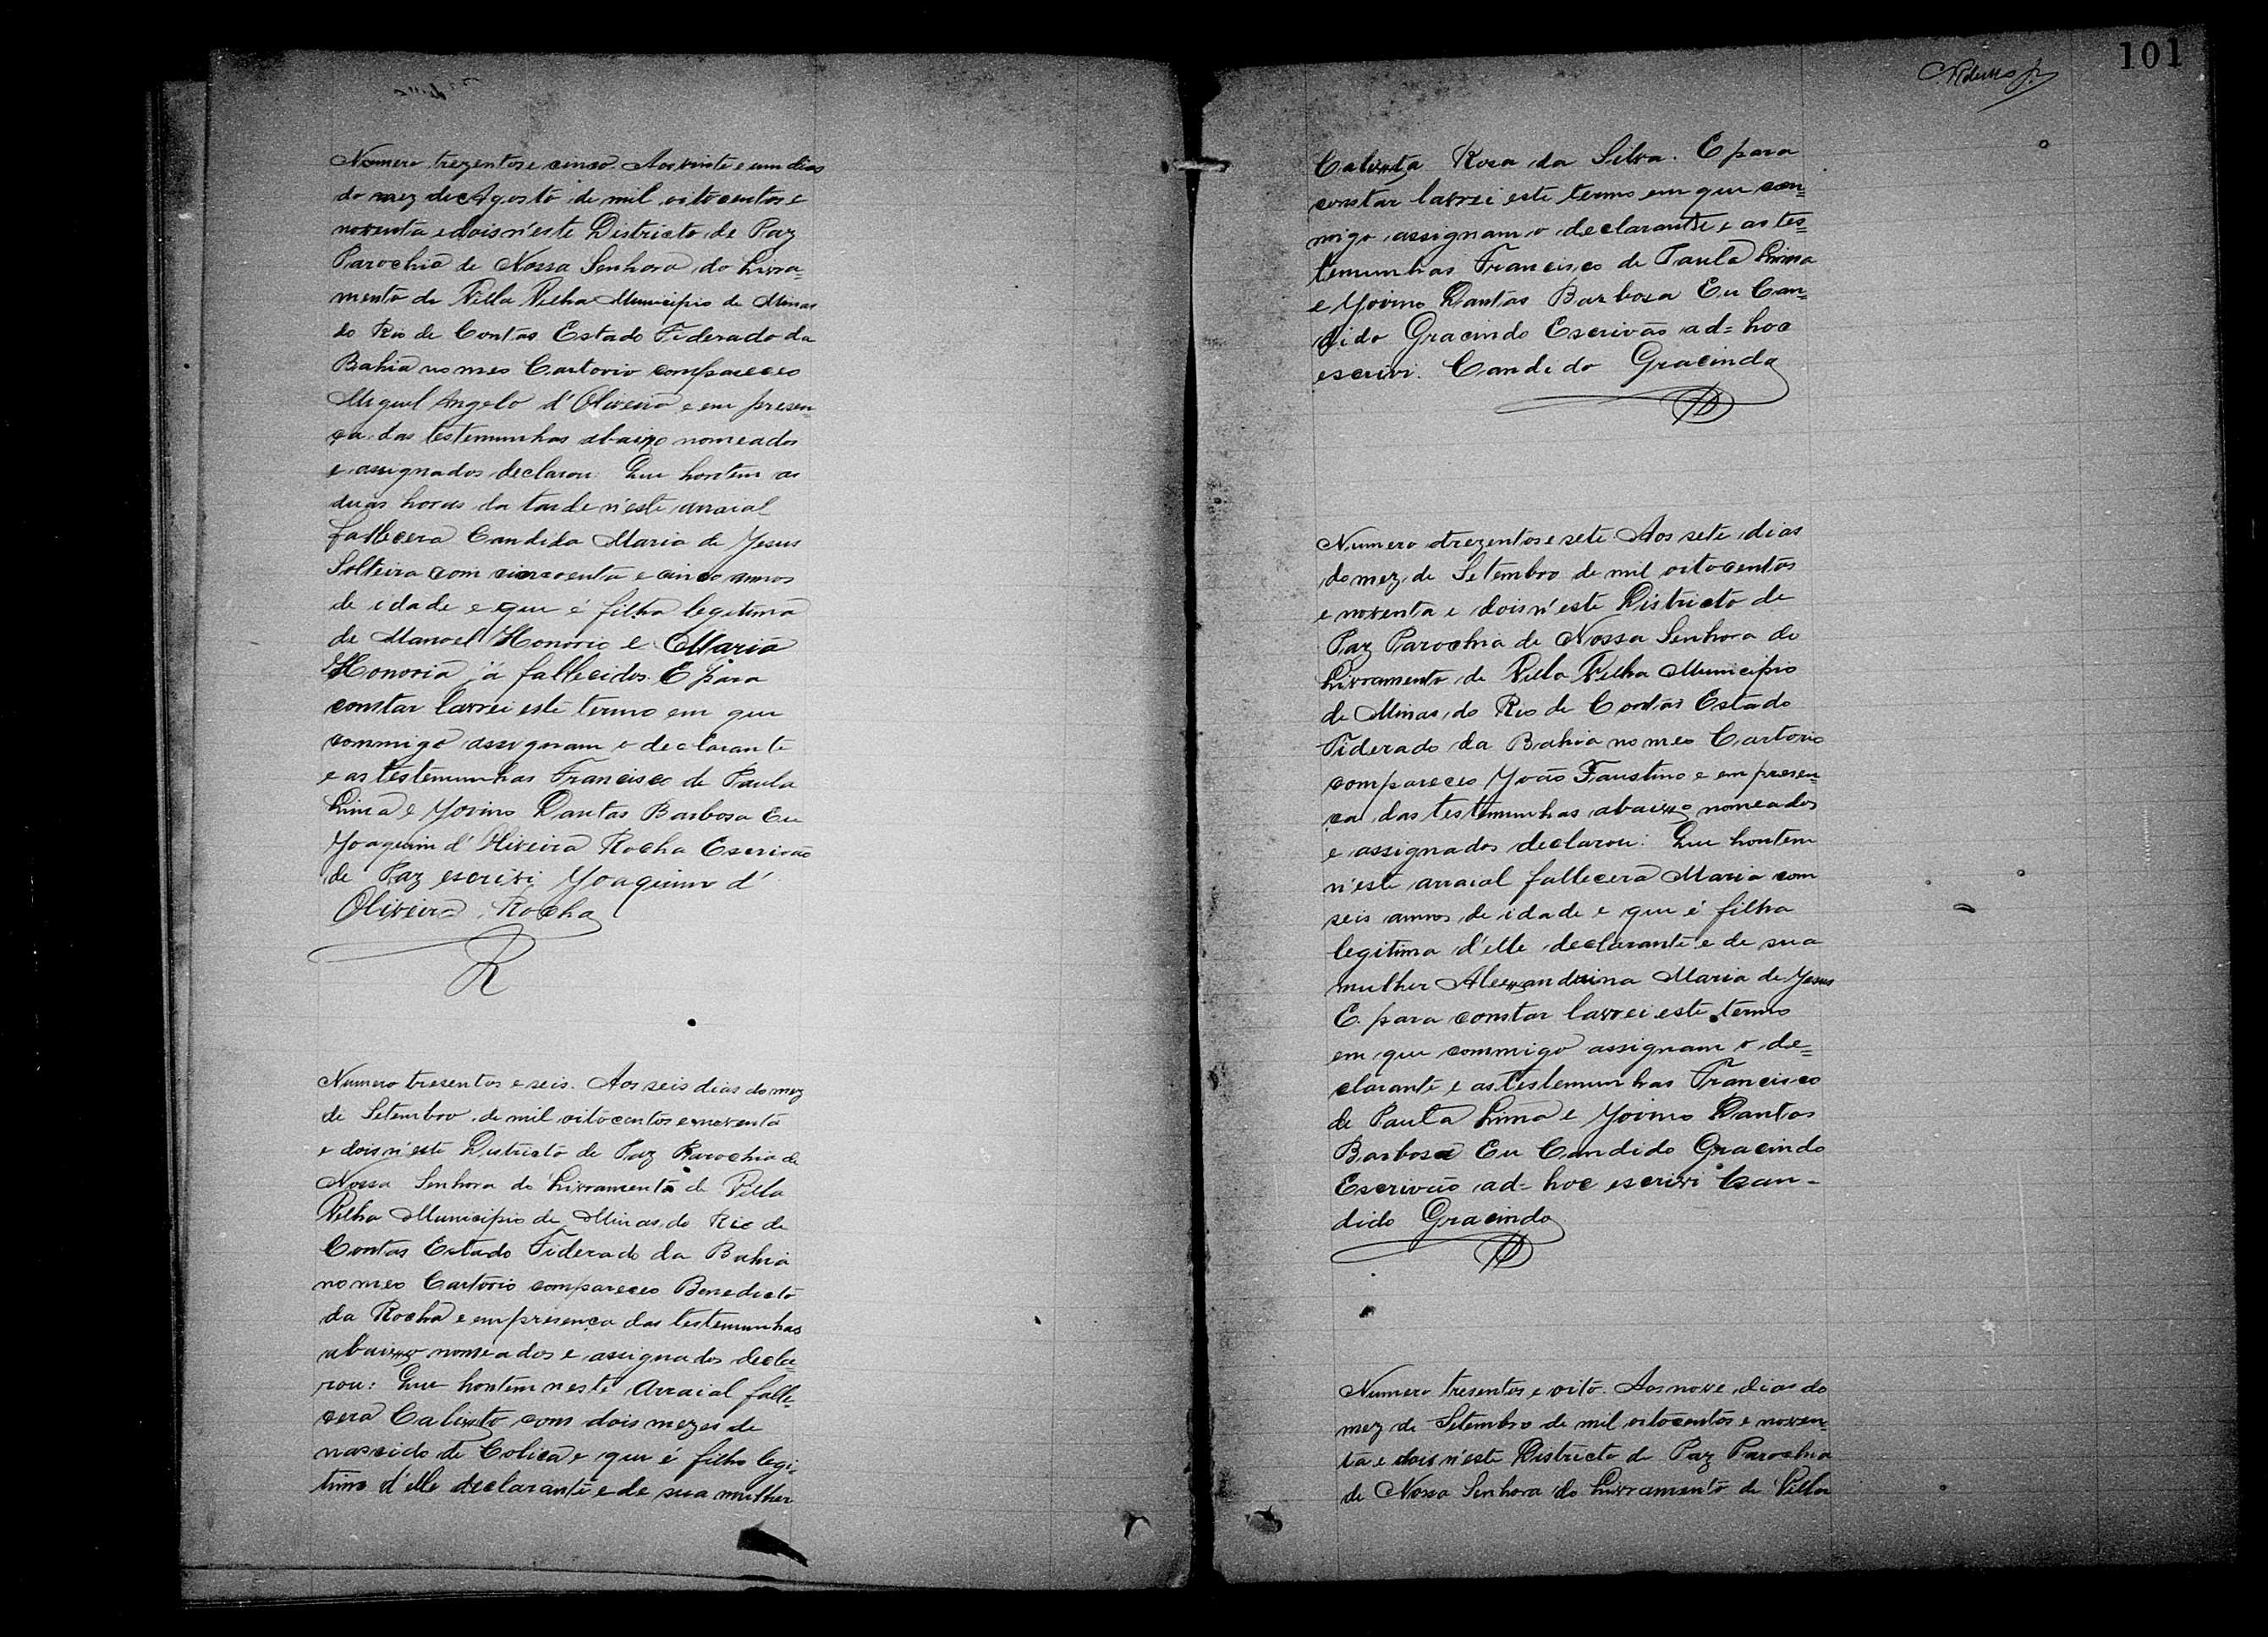 Numero trezentos e cinco. Aos vinte e um dias
do mez de Agosto de mil oitocentos e
noventa e dois n'este Districto de Paz
Parochia de Nossa Senhora do Livra=
mento de Villa Velha Municipio de Minas
do Rio de Contas Estado Federado da
Bahia no meo Cartorio compareceo
Miguel Angelo d'Oliveira e em presen=
ça das testemunhas abaixo nomeados
e assignados declarou: Que hontem as
duas horas da tarde n'este arraial
fallecera Candida Maria de Jesus
Solteira com cincoenta e cinco annos
de idade e que é filha legitima
de Manoel Honorio e Maria
Honoria já fallecidos. E para
constar lavrei este termo em que
commigo assignam o declarante
e as testemunhas Francisco de Paula
Lima e Jovino Dantas Barbosa Eu
Joaquim d'Oliveira Rocha Escrivão
de Paz escrivi Joaquim d'
Oliveira Rocha
R
Numero tresentos e seis. Aos seis dias do mez
de Setembro de mil oitocentos e noventa
e dois n'este Districto de Paz Parochia de
Nossa Senhora do Livramento de Villa
Velha Municipio de Minas do Rio de
Contas Estado Federado da Bahia
no meo Cartorio compareceo Benedicto
da Rocha e em presença das testemunhas
abaixo nomeados e assignados decla=
rou: Que hontem neste Arraial falle=
cera Calixto com dois mezes de
nascido de Colica e que é filho legi=
timo d'elle declarante e de sua mulher
101
Calixta Rosa da Silva. E para
constar lavrei este termo em que com=
migo assignam o declarante e as tes=
temunhas Francisco de Paula Lima
e Jovino Dantas Barbosa Eu Can=
dido Gracindo Escrivão ad=hoc
escrivi. Candido Gracindo
Numero trezentos e sete. Aos sete dias
do mez de Setembro de mil oitocentos
e noventa e dois n'este Districto de
Paz Parochia de Nossa Senhora do
Livramento de Villa Velha Municipio
de Minas do Rio de Contas Estado
Federado da Bahia no meo Cartorio
compareceo João Faustino e em presen=
ça das testemunhas abaixo nomeados
e assignados declarou: Que hontem
n'este arraial fallecera Maria com
seis annos de idade e que é filha
legitima d'elle declarante e de sua
mulher Alexandrina Maria de Jesus
E para constar lavrei este termo
em que commigo assignam o de=
clarante e as testemunhas Francisco
de Paula Lima e Jovino Dantas
Barbosa Eu Candido Gracindo
Escrivão ad=hoc escrivi Can-
dido Gracindo
Numero tresentos e oito. Aos nove dias do
mez de Setembro de mil oitocentos e noven=
ta e dois n'este Districto de Paz Parochia
de Nossa Senhora do Livramento de Villa